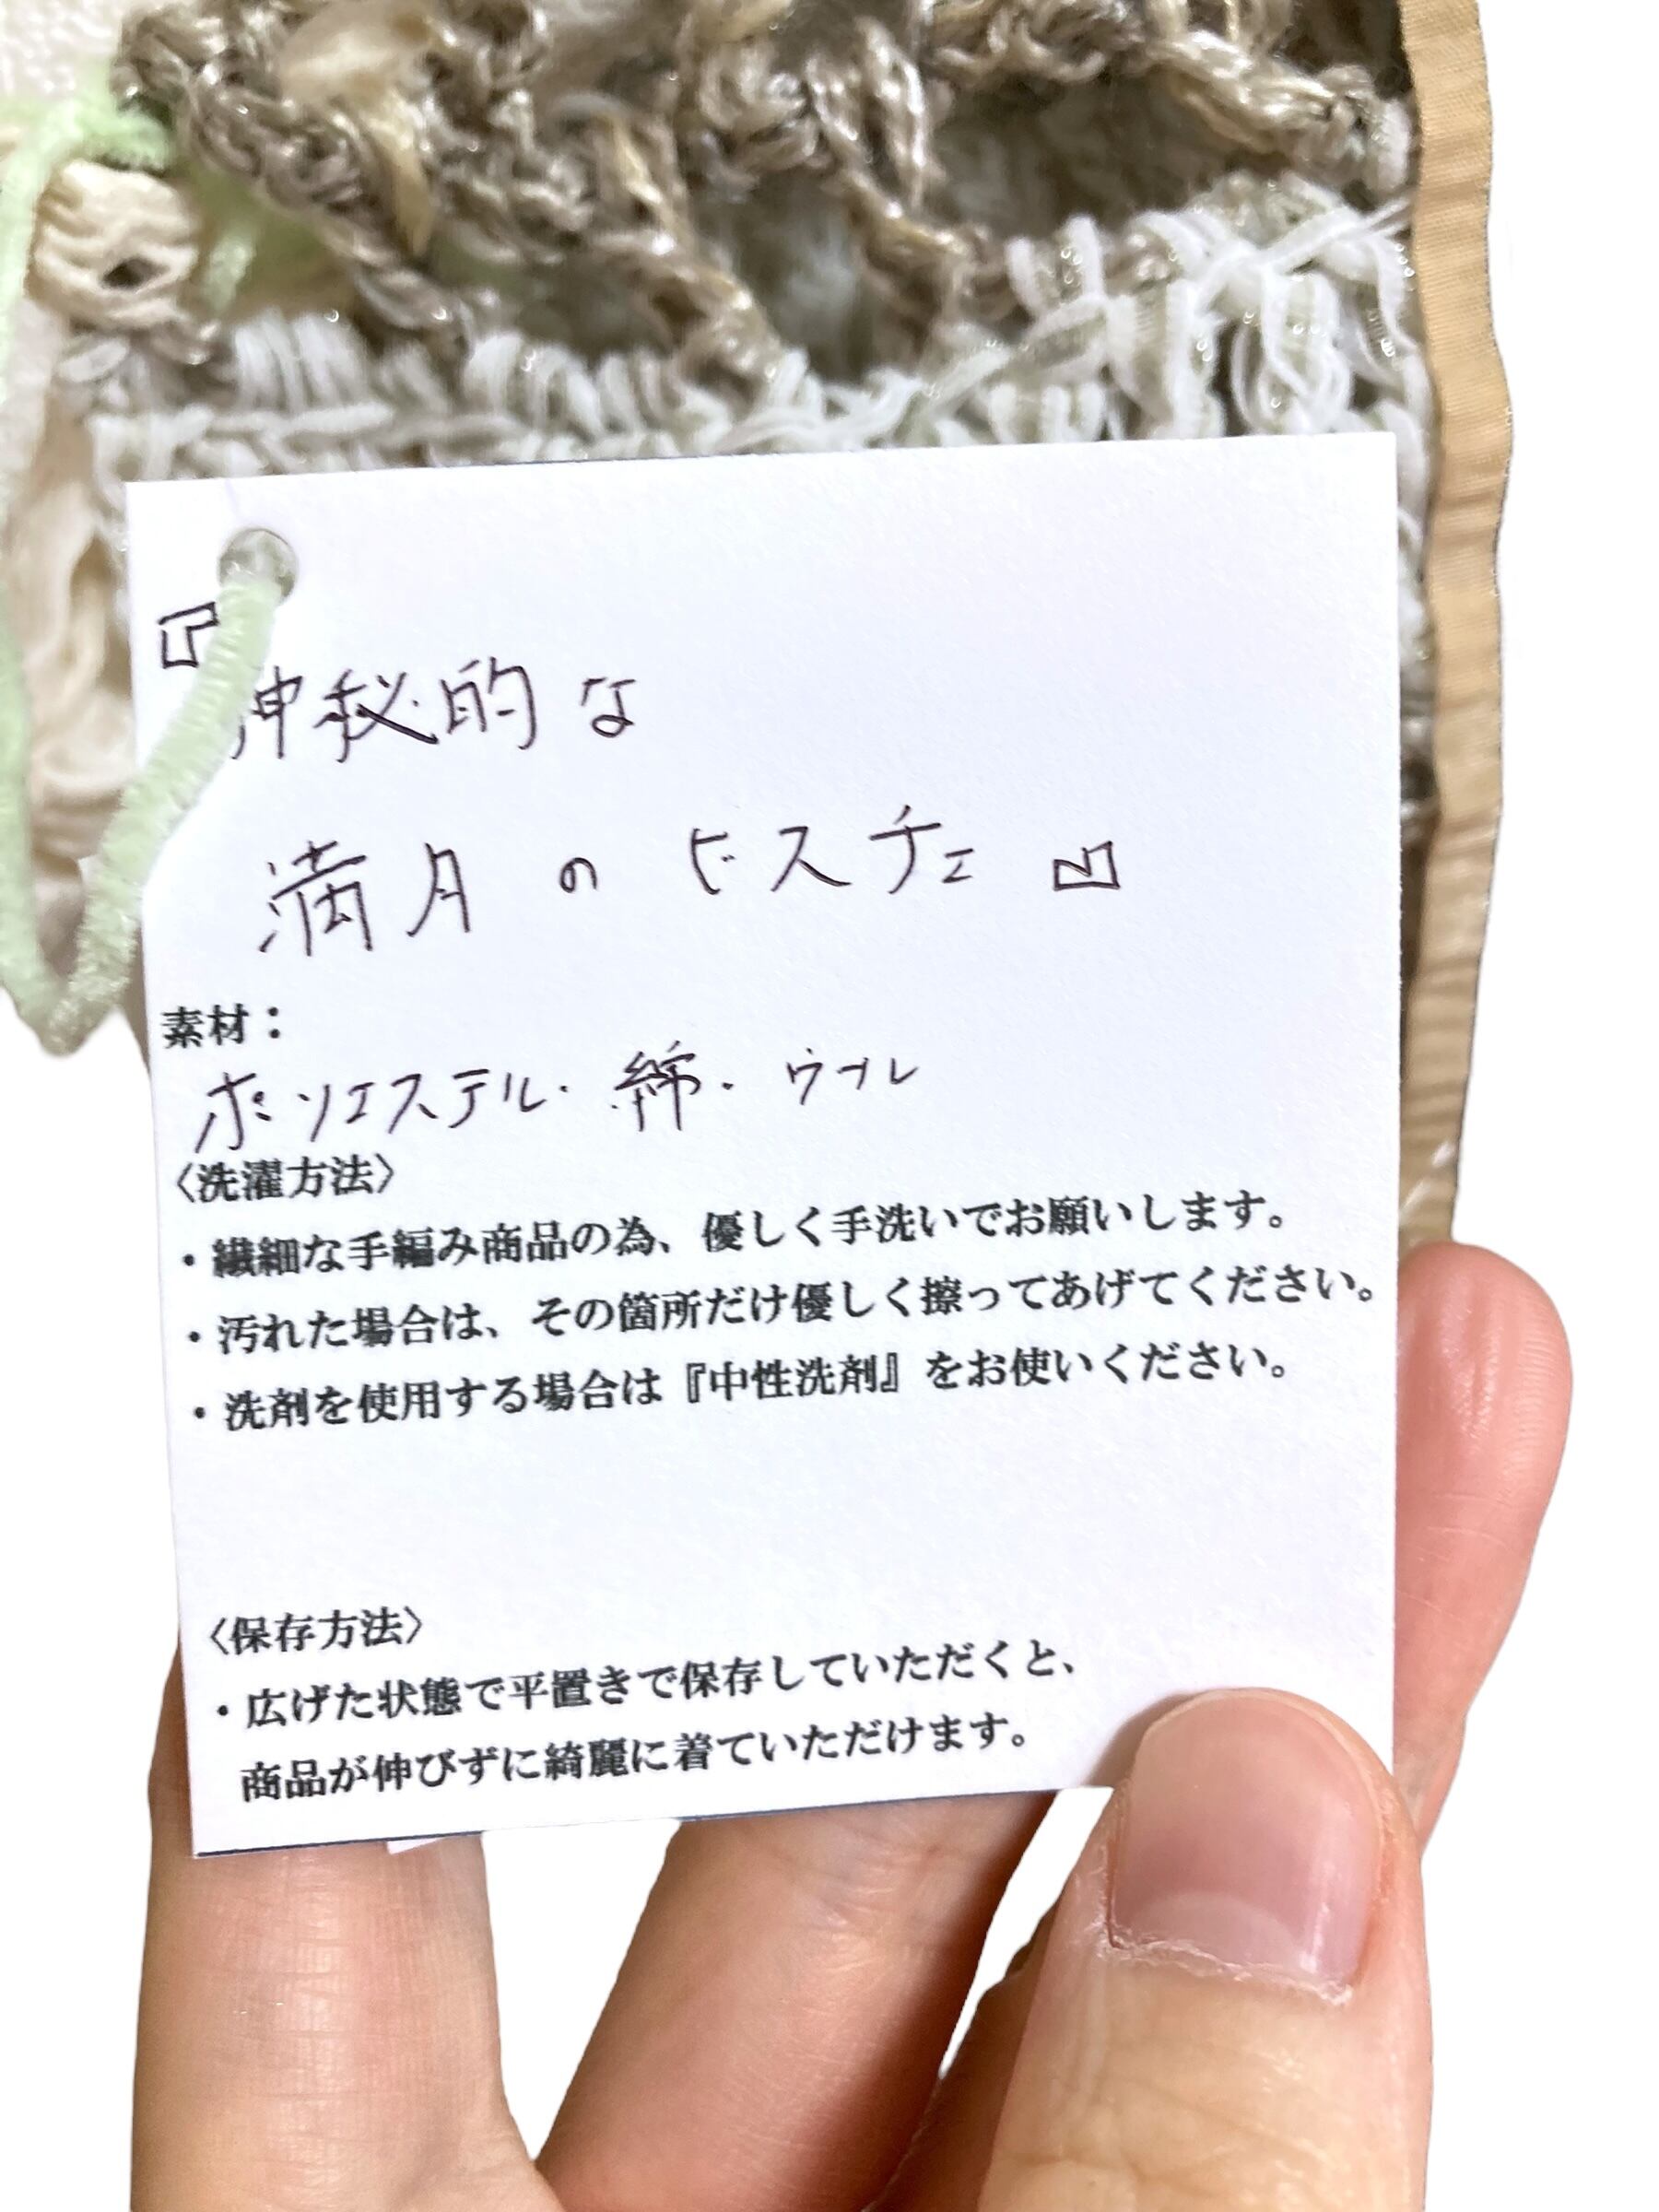 『
神秘的な
満月のビスチェ』
素材：
ポリエステル・綿・ウール
〈洗濯方法〉
・繊細な手編み商品の為、優しく手洗いでお願いします。
・汚れた場合は、その箇所だけ優しく擦ってあげてください。
・洗剤を使用する場合は『中性洗剤』をお使いください。
〈保存方法〉
・広げた状態で平置きで保存していただくと、
商品が伸びずに綺麗に着ていただけます。